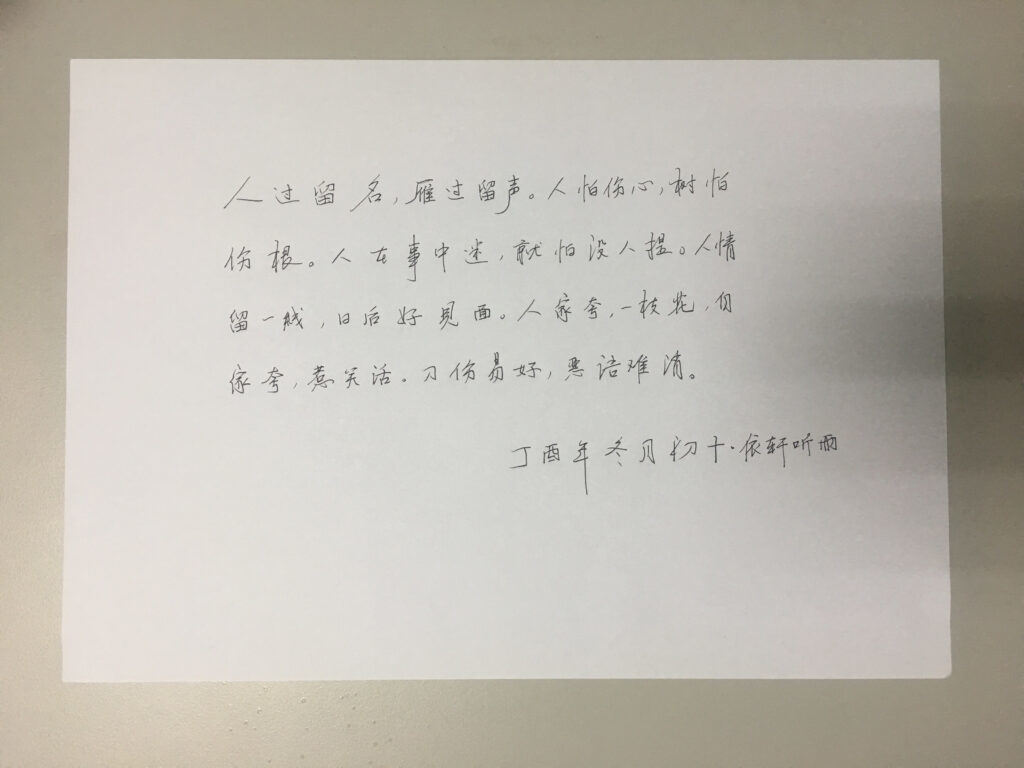 人过留名,雁过留声。人怕伤心,树怕
伤根。人在事中迷,就怕没人提。人情
留一线,日后好见面。人家夸,一枝花,自
家夸,惹笑话。刀伤易好,恶语难消。
丁酉年冬月初十·依轩听雨